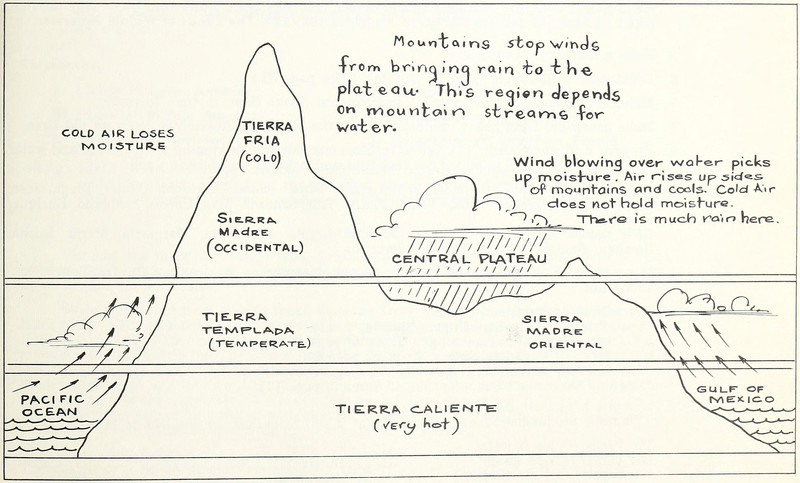 Mountains stop winds
from bringing rain to the
plateau. This region depends
on mountain streams for
water.
COLD AIR LOSES
MOISTURE
TIERRA
FRIA
(COLD)
Wind blowing over water picks
up moisture. Air rises up sides
of mountains and cools. Cold Air
does not hold moisture.
There is much rain here.
SIERRA
MADRE
(OCCIDENTAL)
CENTRAL PLATEAU
TIERRA
TEMPLADA
(TEMPERATE)
SIERRA
MADRE
ORIENTAL
PACIFIC
OCEAN
TIERRA CALIENTE
(very hot)
GULF OF
MEXICO